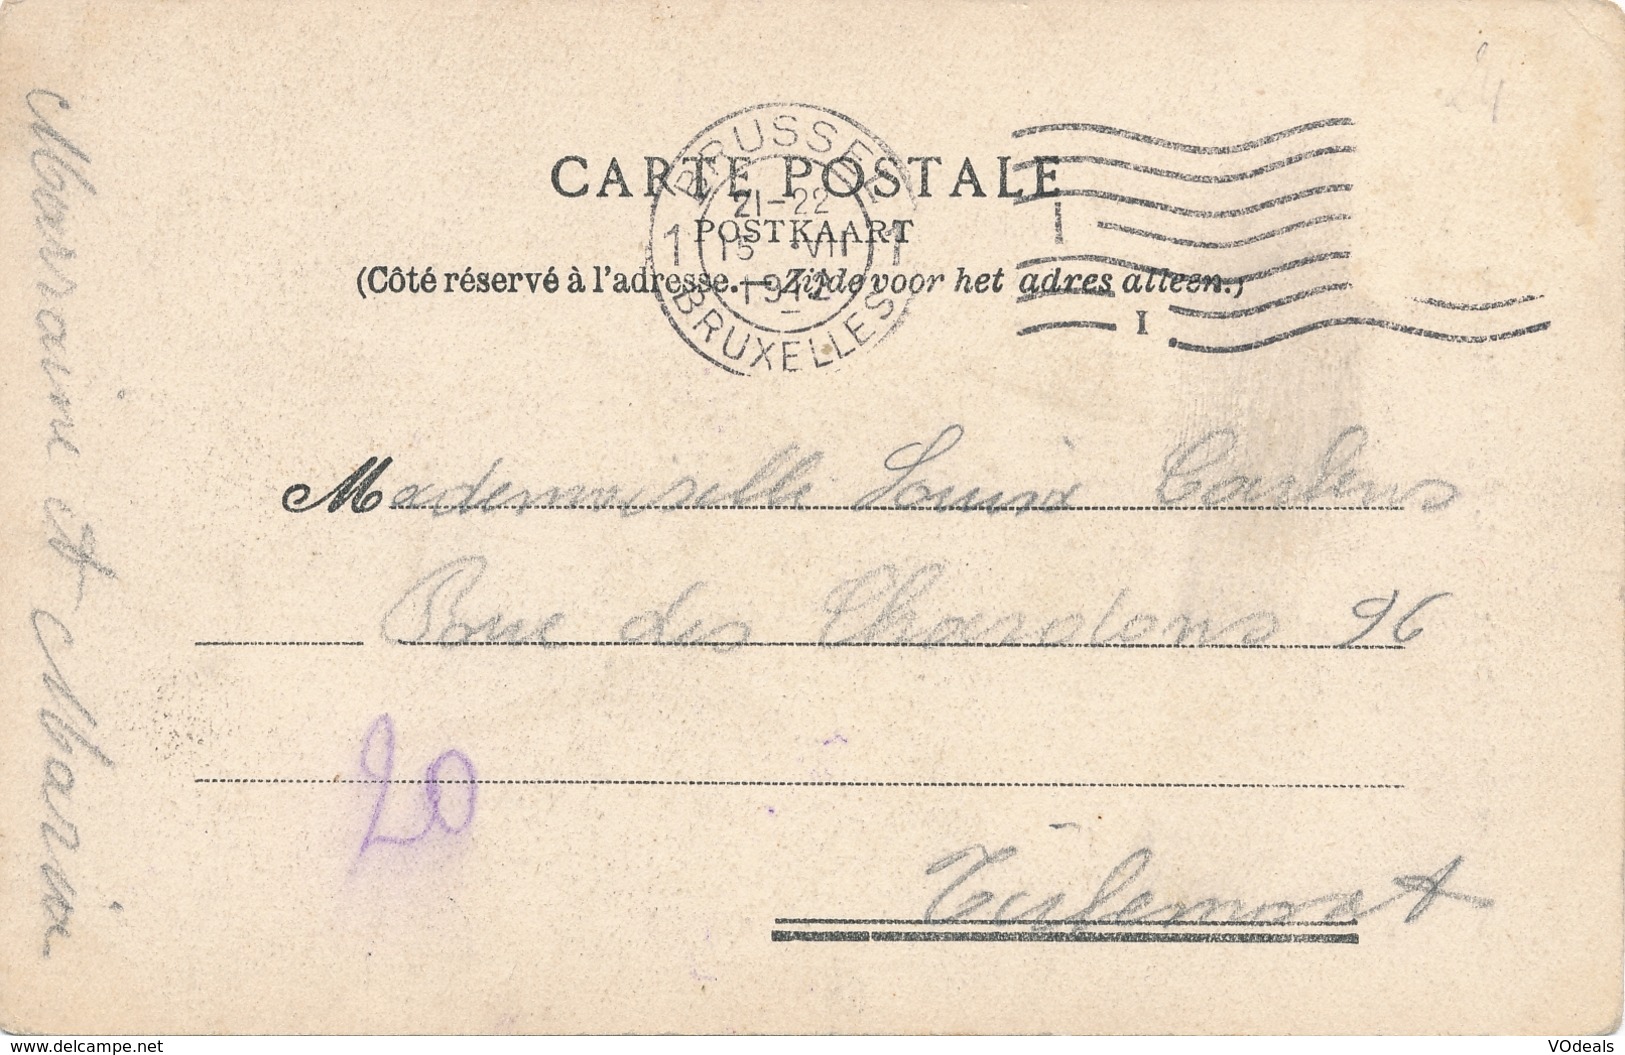 CARTE POSTALE
POSTKAART
(Côté réservé à l'adresse. — Zijde voor het adres alleen.)
BRUSSEL
21-22
1 15 VII 1
1912
BRUXELLES
I
Mademoiselle Louise
Rue des Chardons 96
Tirlemont
20
Marraine et Maria
delcampe.net
VOdeals